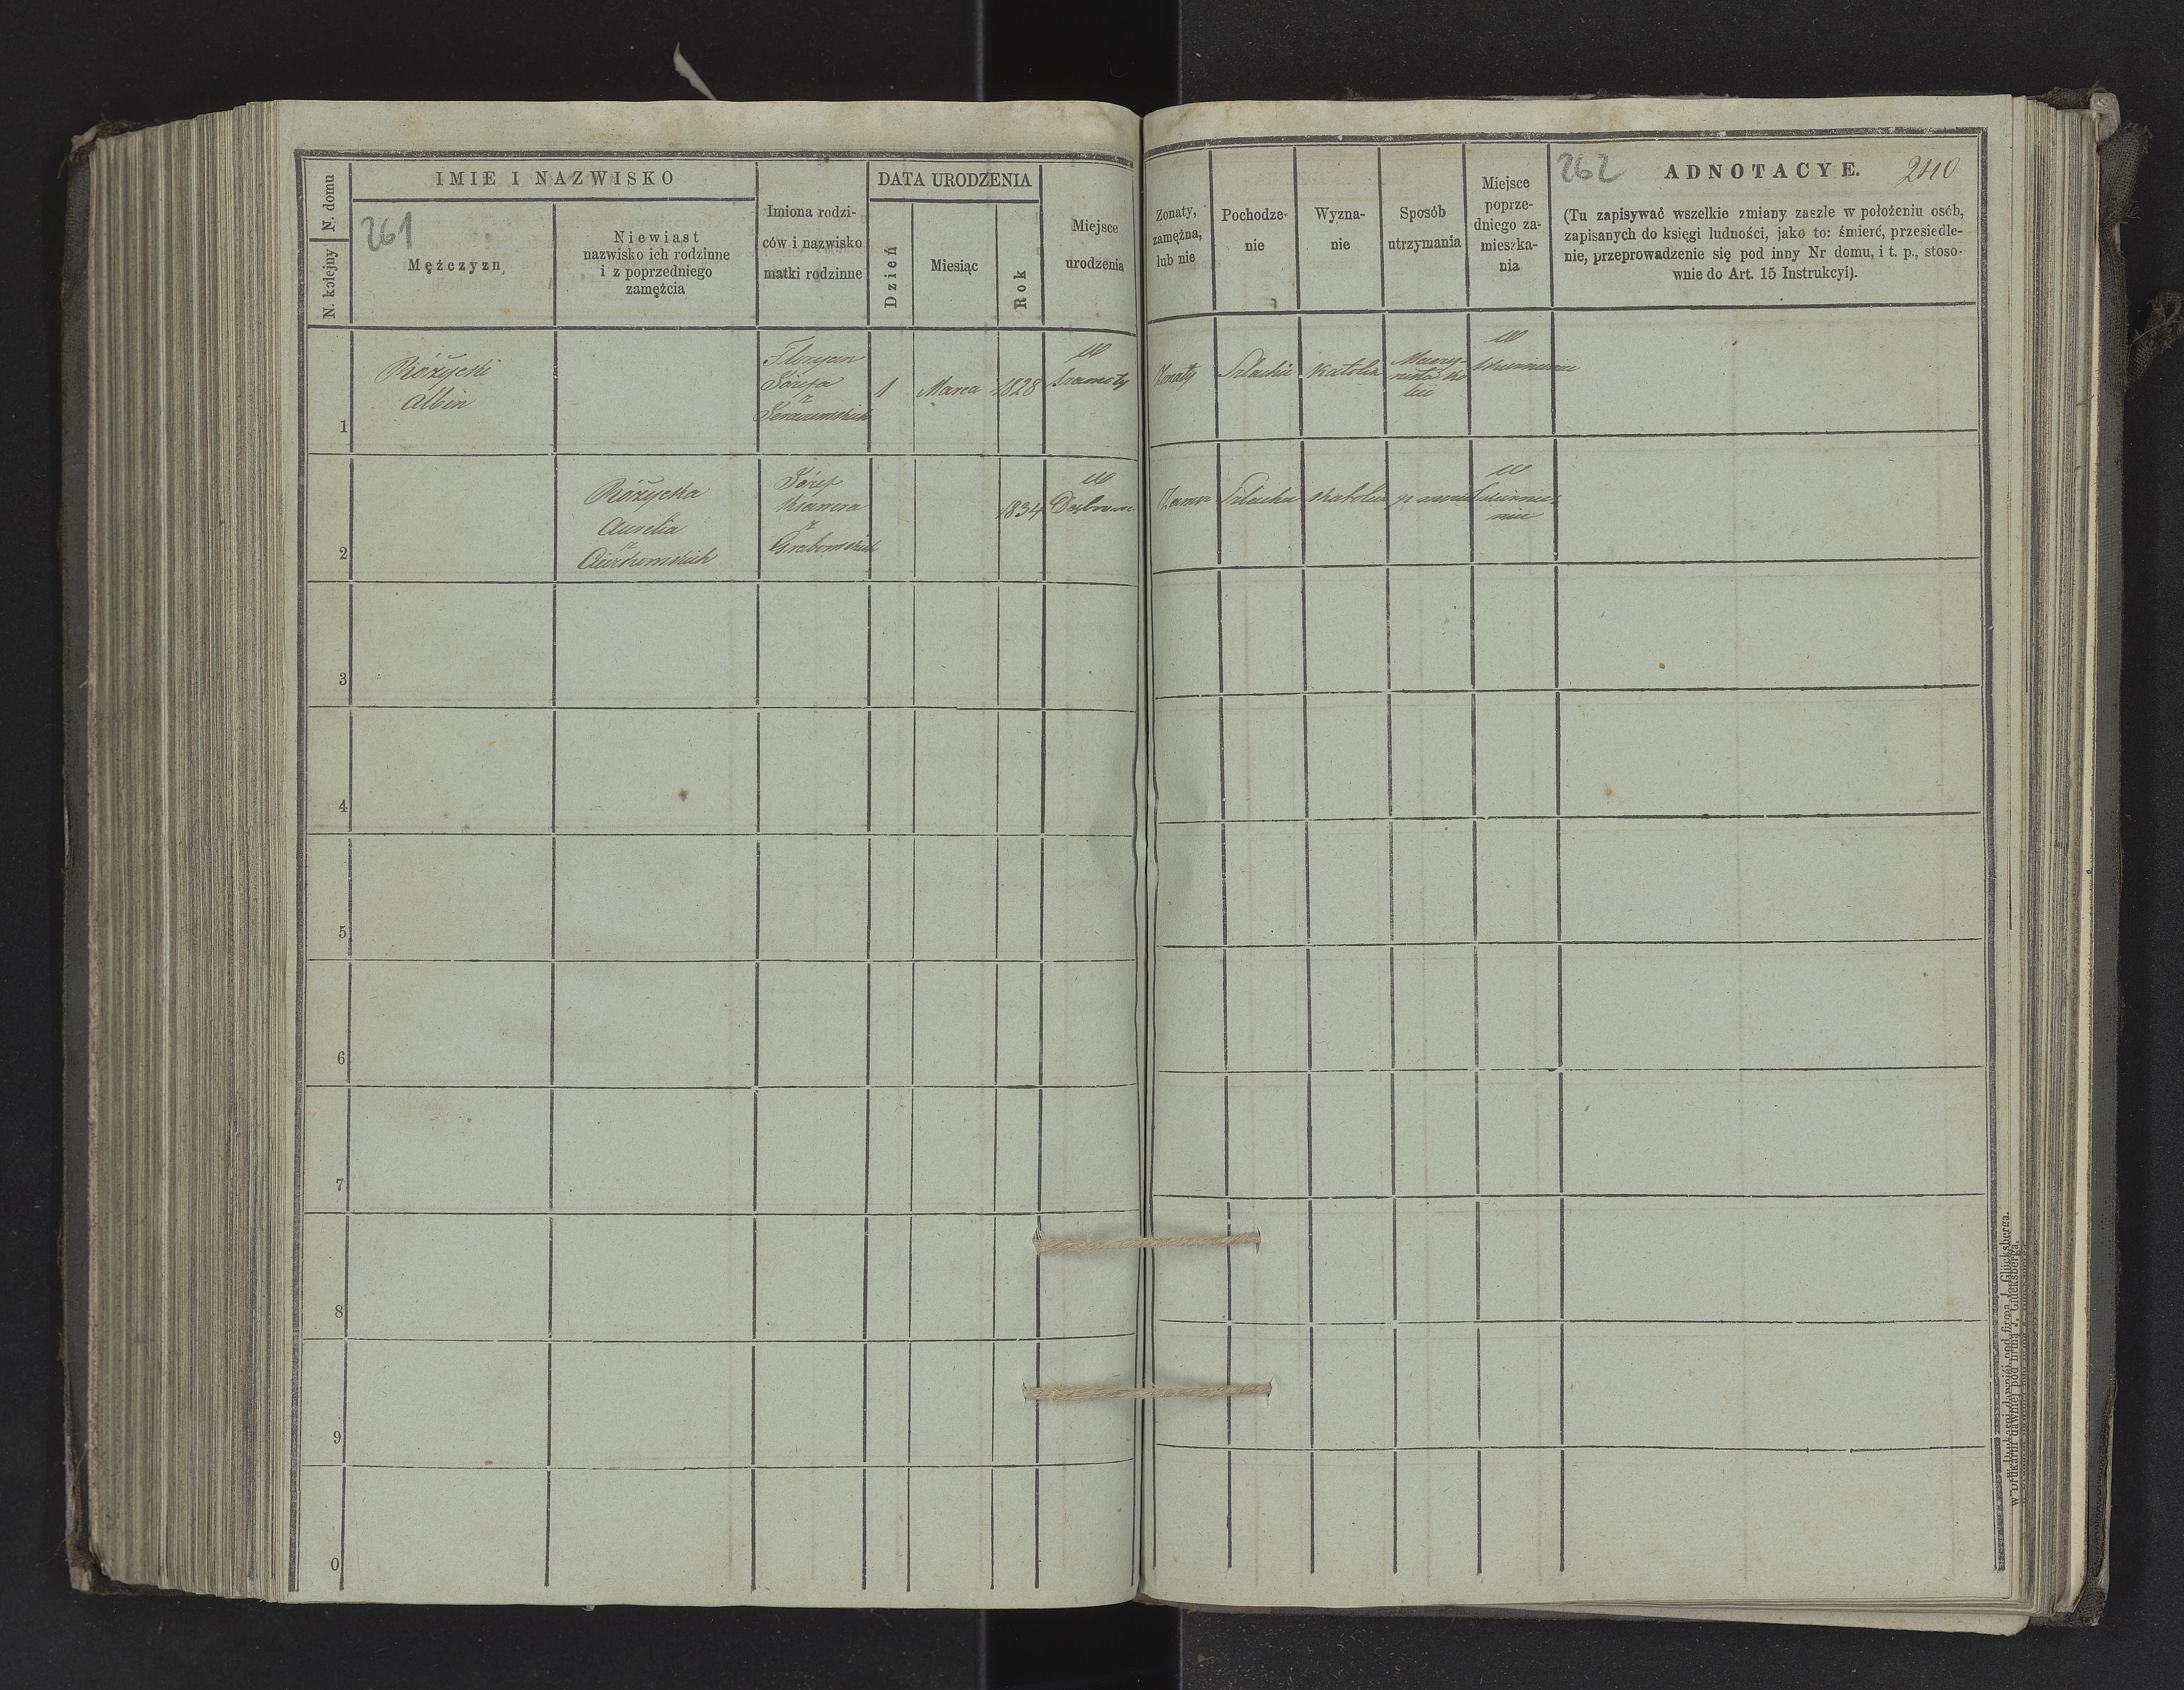 N. kolejny N. domu
IMIE I NAZWISKO
261
Mężczyzn
Niewiast
nazwisko ich rodzinne
i z poprzedniego
zamężcia
Imiona rodzi-
ców i nazwisko
matki rodzinne
DATA URODZENIA
Dzień
Miesiąc
Rok
Miejsce
urodzenia
Żonaty,
zamężna,
lub nie
Pochodze-
nie
Wyzna-
nie
Sposób
utrzymania
Miejsce
poprze-
dniego za-
mieszka-
nia
262 ADNOTACYE. 240
(Tu zapisywać wszelkie zmiany zaszłe w położeniu osób,
zapisanych do księgi ludności, jako to: śmierć, przesiedle-
nie, przeprowadzenie się pod inny Nr domu, i t. p., stoso-
wnie do Art. 15 Instrukcyi).
1
Różycki
Albin
Floryan
Józefa
z
1
Marca
1828
w
Żonaty
Szlachic
Katolik
w
2
Różycka
Aurelia
z
Józef
z
Grabowskich
1834
w
Katolic
w
3
4
5
6
7
8
9
0
W Drukarni dawniej pod firmą J. Glücksberga.